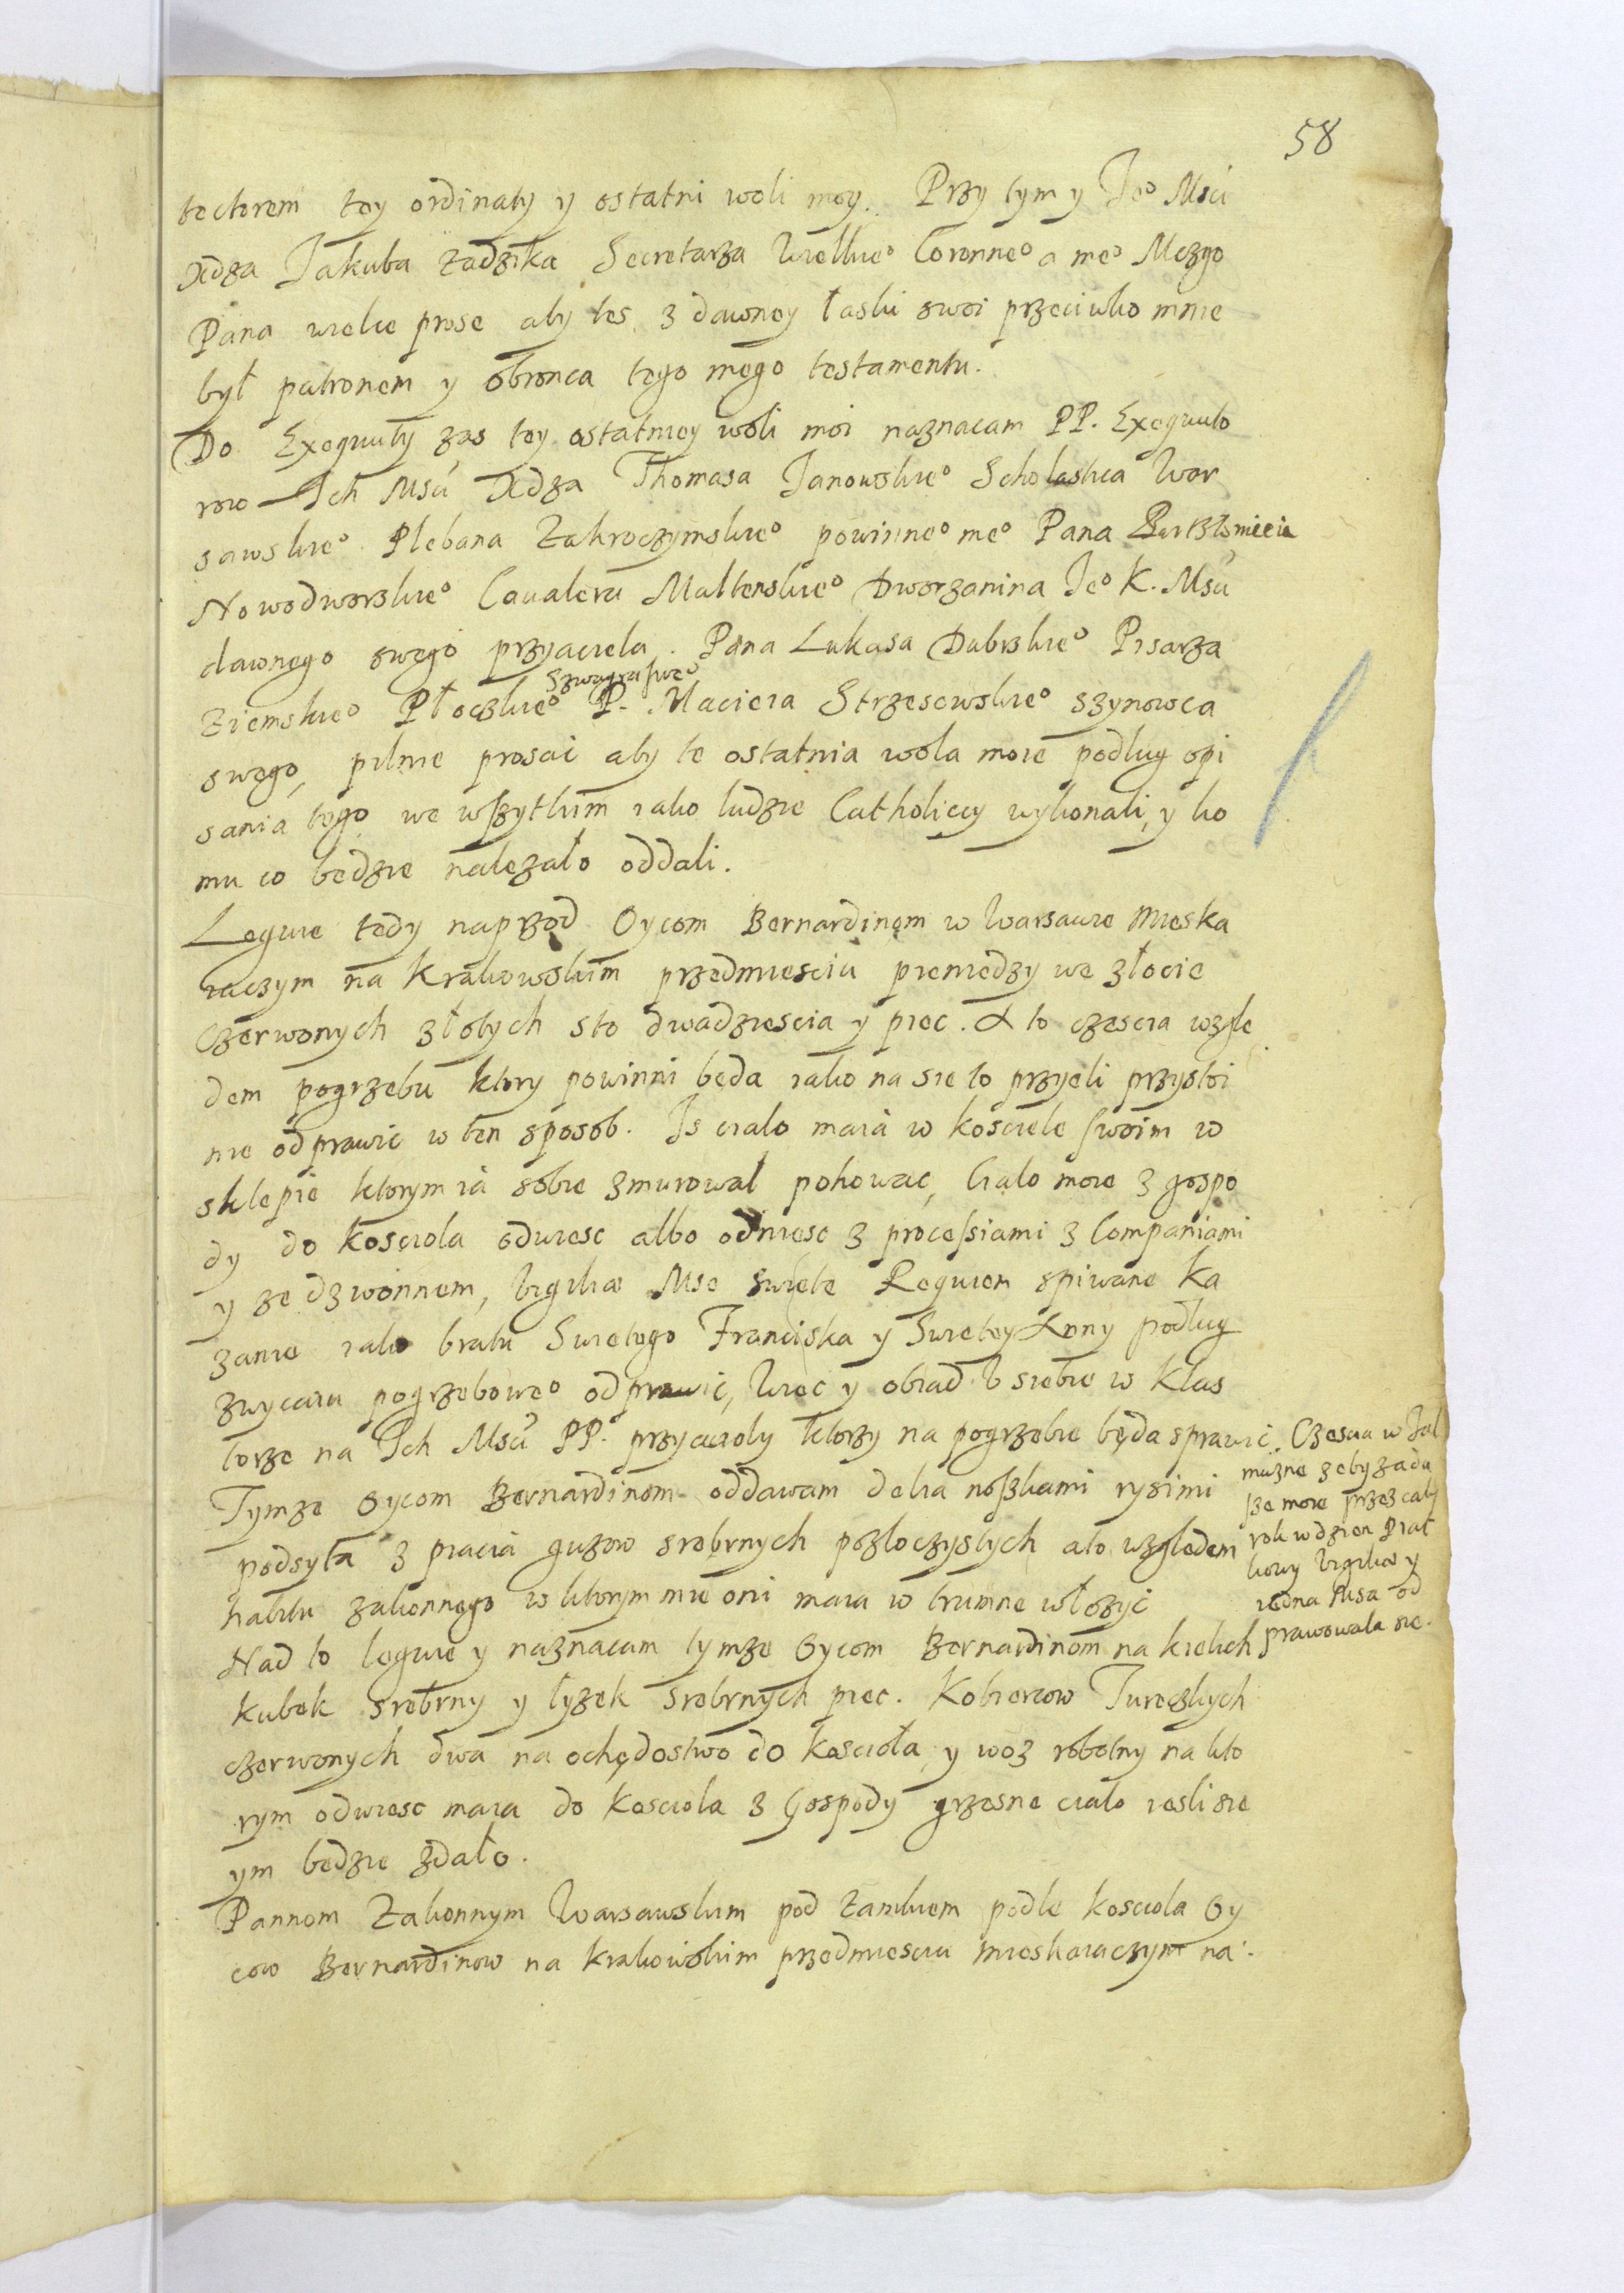 58
tectorem tey ordinaty y ostatni woli moy. Przy tym y Jeo Msci
Xdza Jakuba Zadzika Secretarza Wielkieo Coronneo a meo Mczgo
Pana wielce prose aby tes z dawney łaski swoi przeciwko mnie
był patronem y obronca tego mego testamentu.
Do Exequuty zas tey ostatniey woli moi naznacam PP. Exequuto
row Ich Msci Xdza Thomasa Janowskieo Scholastica War
sawskieo Plebana Zakroczymskieo powinneo meo Pana Bartłomieia
Nowodworskieo Caualera Maltenskieo Dworzanina Jeo K. Msci
dawnego swego przyaciela. Pana Lukasa Dubrskieo Pisarza
Szwagra sweo
Ziemskieo Płoczkieo P. Macieia Strzesewskieo szynowca
swego, pilnie prosac aby te ostatnia wola moie podlug opi
sania tego we wszytkim iako ludzie Catholiccy wykonali, y ko
mu co bedzie nalezało oddali.
Leguie tedy naprzod Oycom Bernardinom w Warsawie mieska
iaczym na Krakowskim przedmiesciu pieniedzy we złocie
Czerwonych złotych sto dwadziescia y piec. A to czescia wzgle
dem pogrzebu ktory powinni będa iako na sie to przyeli przystoi
nie odprawic w ten sposob. Is cialo maia w kosciele swoim w
sklepie ktorym ia sobie zmurował pohowac, Cialo moie z gospo
dy do kosciola odwiesc albo odniesc z processiami z Companiami
y ze dzwonnem, Vigiliae Msse swiete Requiem spiwane Ka
zanie iako bratu Swietego Franciska y Swietey Anny podlug
zwycaiu pogrzeboweo odprawic, Wiec y obiad V siebie w Klas
torze na Ich Msci PP. przyacioly ktorzy na pogrzebie będa sprawic. Czescia w Jal
muzne zeby za du
sze moie przez caly
rok w dzien Piat
kowy Vigiliae y
iedna Msa od
prawowala sie.
Tymze Oycom Bernardinom oddawam delia noszkami rysimi
podsyta z piacia guzow srebrnych pozloczystych a to wzgledem
habitu zakonnego w ktorym mie oni maia w trumne włozyc
Nad to leguie y naznacam tymze Oycom Bernardinom na kielich
kubek srebrny y łyzek srebrnych piec. Kobiercow Tureczkych
czerwonych dwa na ochędostwo do Kascioła, y woz robotny na kto
rym odwiesc maia do Kosciola z Gospody grzesne cialo iesli sie
ym będzie zdało.
Pannom Zakonnym Warsawskim pod Zamkiem podle kosciola Oy
cow Bernardinow na Krakowskim przedmiesciu mieskaiaczym na